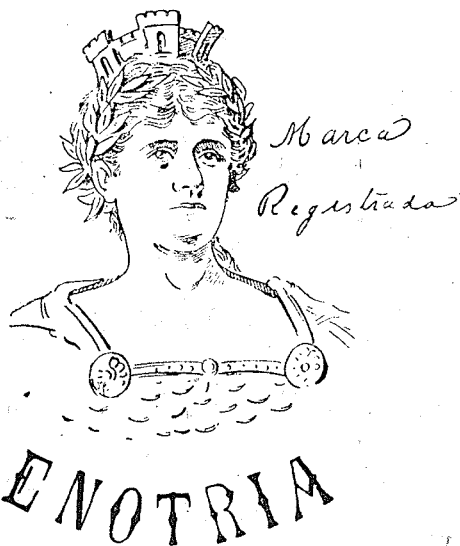 Marca
Registrada
ENOTRIA